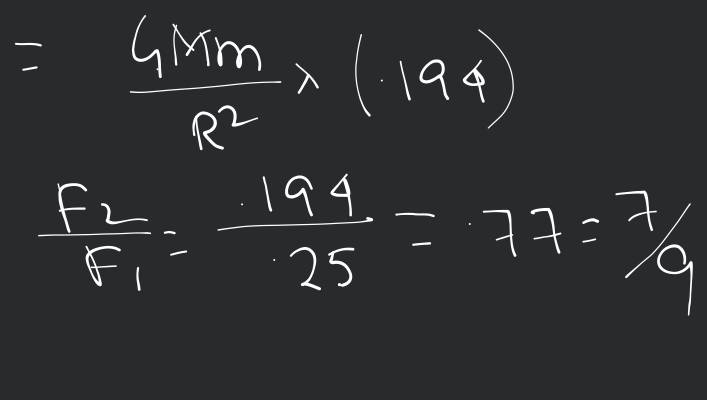 = GMm / R² × (.194)
F₂ / F₁ = .194 / .25 = .77 = 7/9